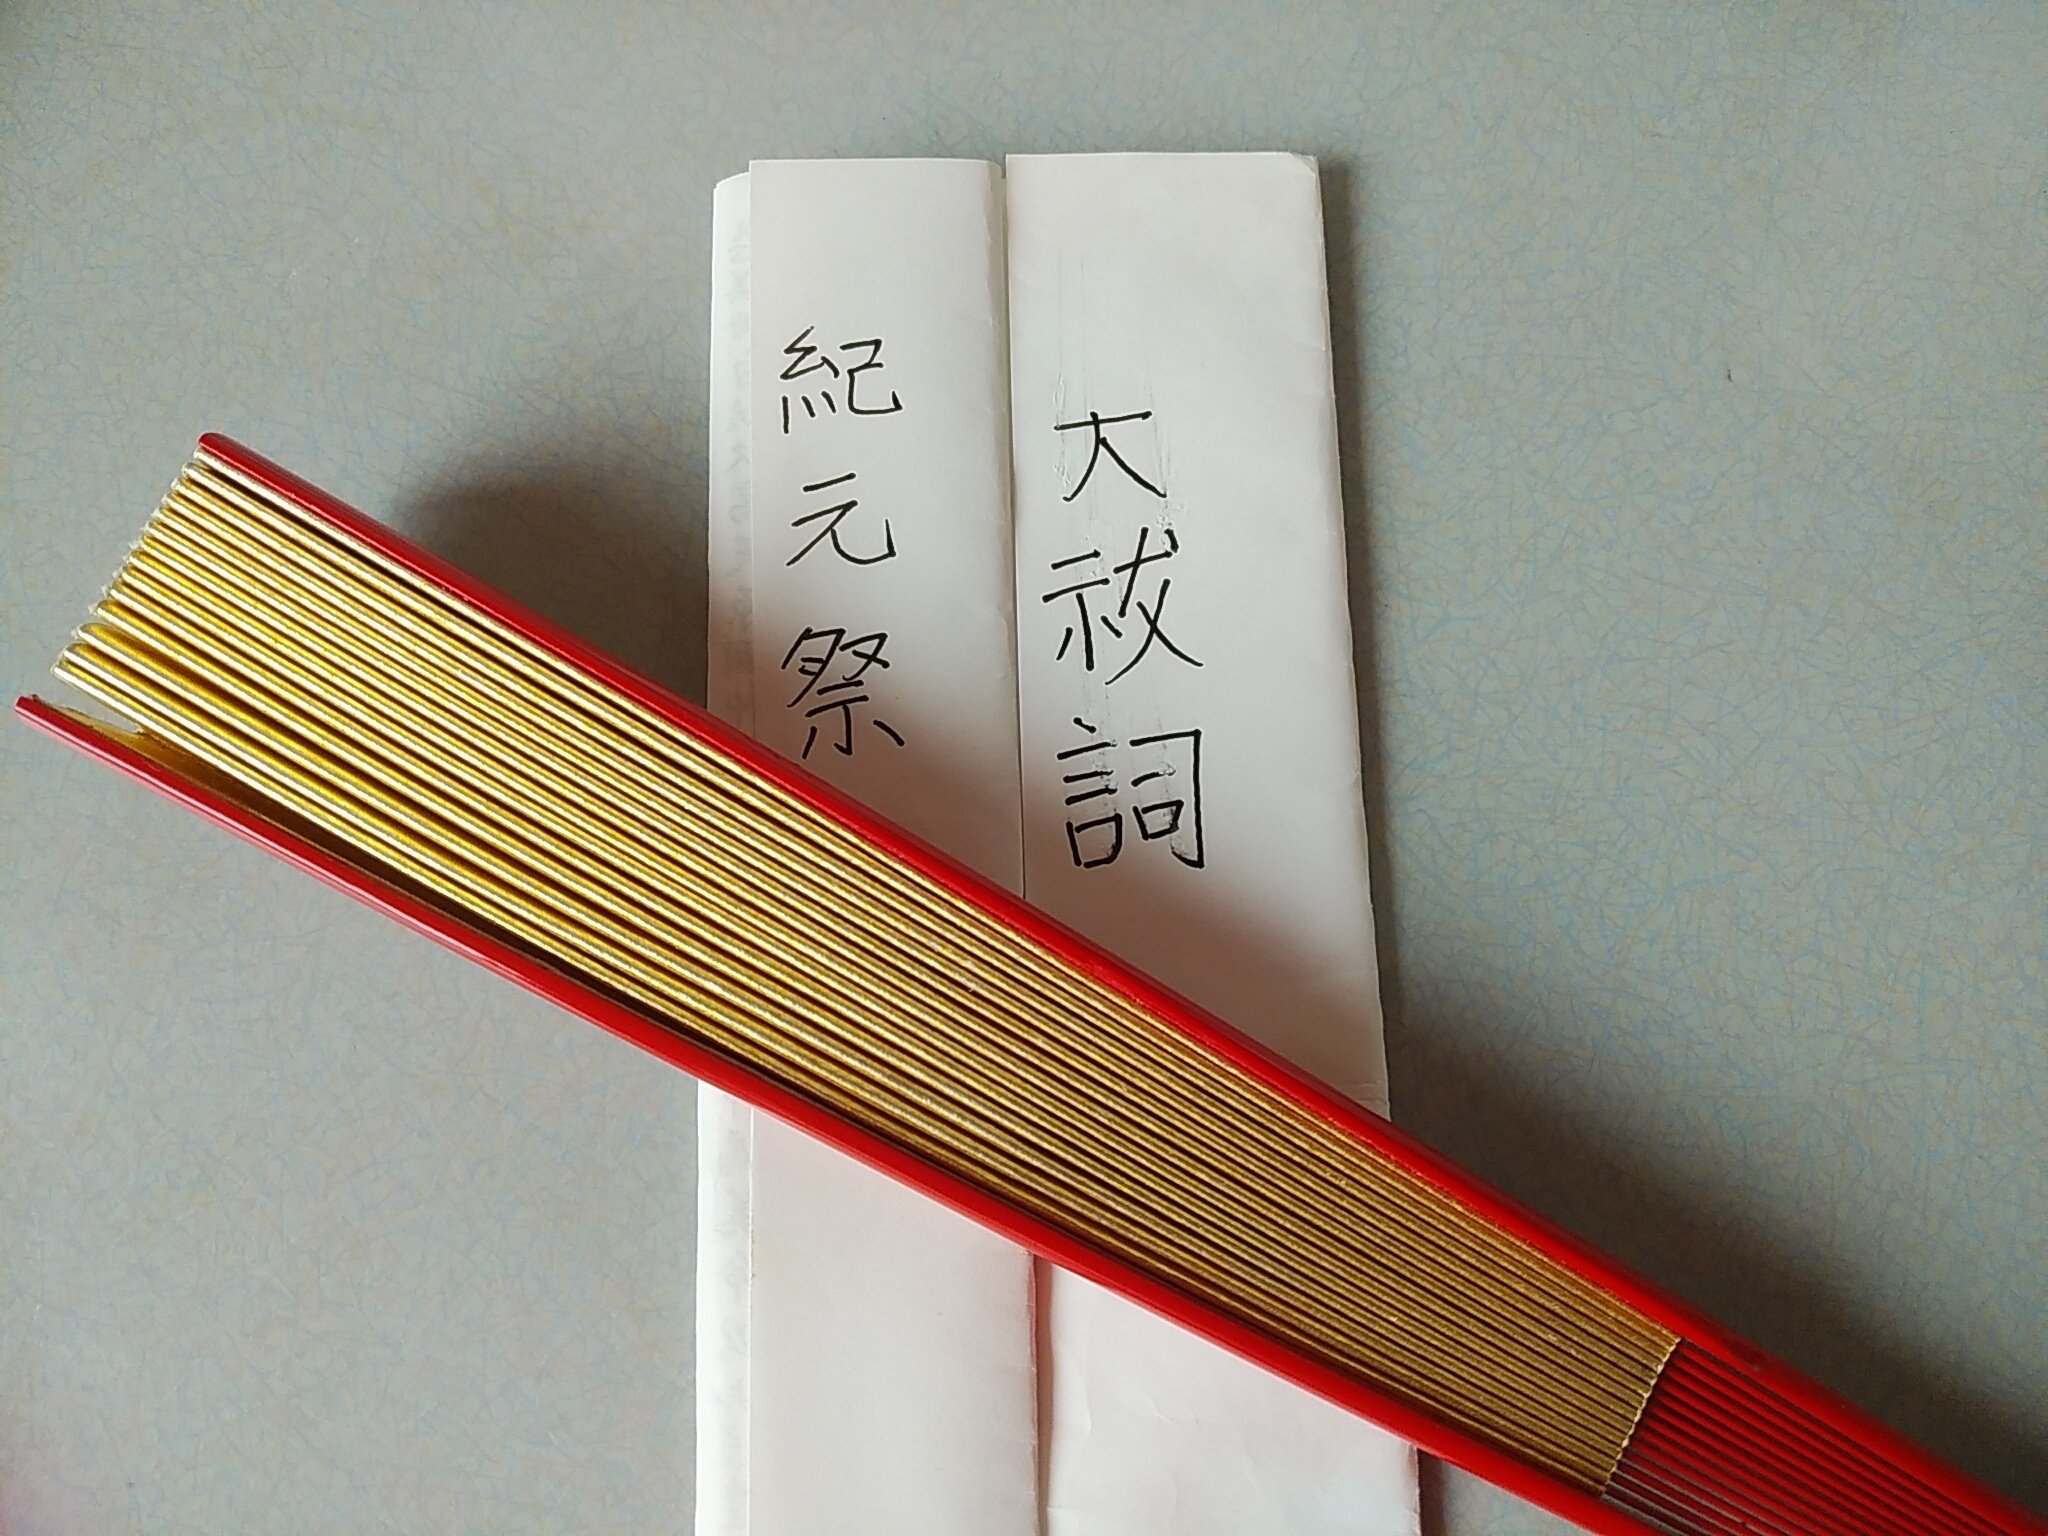 大祓詞
紀元祭